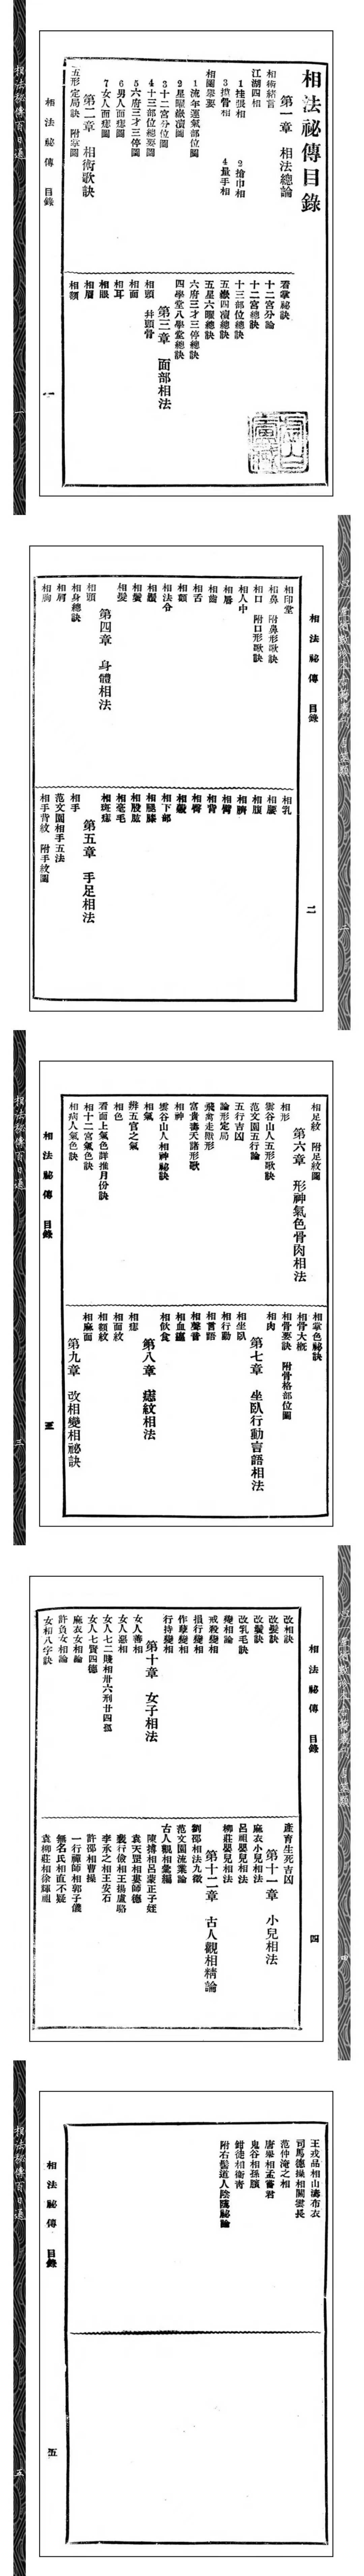 相法祕傳目錄
第一章 相法總論
相術緒言
江湖四相
1 挂張相 2 搶巾相
3 摸骨相 4 量手相
相圖舉要
1 流年運氣部位圖
2 星曜嶽瀆圖
3 十二宮分位圖
4 十三部位總要圖
5 六府三才三停圖
6 男人面痣圖
7 女人面痣圖
第二章 相術歌訣
五形定局訣 附掌圖
看掌祕訣
十二宮分論
十二宮總訣
十三部位總訣
五嶽四瀆總訣
五星六曜總訣
六府三才三停總訣
四學堂八學堂總訣
第三章 面部相法
相頭 幷頭骨
相面
相耳
相眼
相眉
相額
相法祕傳 目錄
一
相法祕傳 目錄
二
相印堂
相鼻 附鼻形歌訣
相口 附口形歌訣
相人中
相唇
相齒
相舌
相頤
相法令
相鬚
相鬢
相髮
第四章 身體相法
相頸
相身總訣
相肩
相胸
相乳
相腰
相腹
相臍
相臂
相背
相臀
相穀
相下部
相腿膝
相股肱
相毫毛
相斑痣
第五章 手足相法
相手
范文園相手五法
相手背紋 附手紋圖
相足紋 附足紋圖
第六章 形神氣色骨肉相法
相形
雲谷山人五形歌訣
范文園五行論
五行吉凶
論形定局
飛禽走獸形
富貴壽夭諸形歌
相神
雲谷山人相神祕訣
相氣
辨五官之氣
相色
看面上氣色詳推月份訣
相十二宮氣色訣
相病人氣色訣
相掌色祕訣
相骨大概
相骨要訣 附骨格部位圖
相肉
第七章 坐臥行動言語相法
相坐臥
相行動
相言語
相聲音
相血蘊
相飲食
第八章 痣紋相法
相痣
相面紋
相額紋
相麻面
第九章 改相變相祕訣
相法祕傳 目錄
三
相法祕傳 目錄
四
改相訣
改髮訣
改鬚訣
改乳毛訣
變相論
戒殺變相
損行變相
作孽變相
行持變相
第十章 女子相法
女人善相
女人惡相
女人七二賤相卅六刑廿四孤
女人七賢四德
麻衣女相論
許負女相論
女相八字訣
產育生死吉凶
第十一章 小兒相法
麻衣小兒相法
呂祖嬰兒相法
柳莊嬰兒相法
第十二章 古人觀相精論
劉邵相法九徵
范文園流業論
古人觀相彙編
陳摶相呂蒙正子姪
袁天罡相婁師德
裴行儉相王揚盧駱
李承之相王安石
許邵相曹操
一行禪師相郭子儀
無名氏相直不疑
袁柳莊相徐輝祖
王戎品相山濤布衣
司馬德操相關雲長
范仲淹之相
唐舉相孟嘗君
鬼谷相孫臏
鉗徒相衛青
附右髻道人陰隲祕論
相法祕傳 目錄
五